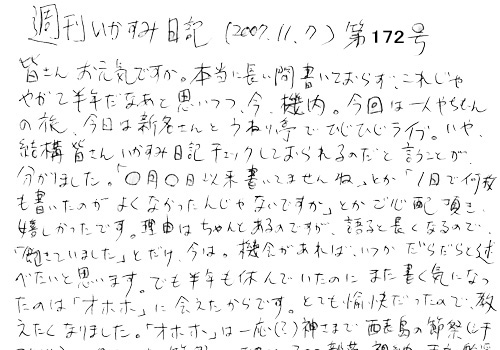 週刊いかすみ日記 (2007.11.7) 第172号
皆さんお元気ですか。本当に長い間書いておらず、これじゃ
やがて半年だなあと思いつつ、今、機内。今回は一人やちむん
の旅、今日は新名さんとうねり亭でひじひじライブ。いや、
結構皆さんいかすみ日記チェックしておられるのだと言うことが、
分かりました。「〇月〇日以来書いてませんね」とか「1日で何枚
も書いたのがよくなかったんじゃないですか」とかご心配頂き、
嬉しかったです。理由はちゃんとあるのですが、語ると長くなるので、
「飽きていました」とだけ、今は。機会があれば、いつかだらだらと述
べたいと思います。でも半年も休んでいたのにまた書く気になっ
たのは「オホホ」に会えたからです。とても愉快だったので、教
えたくなりました。「オホホ」は一応(?)神さまで西表島の節祭(シチ